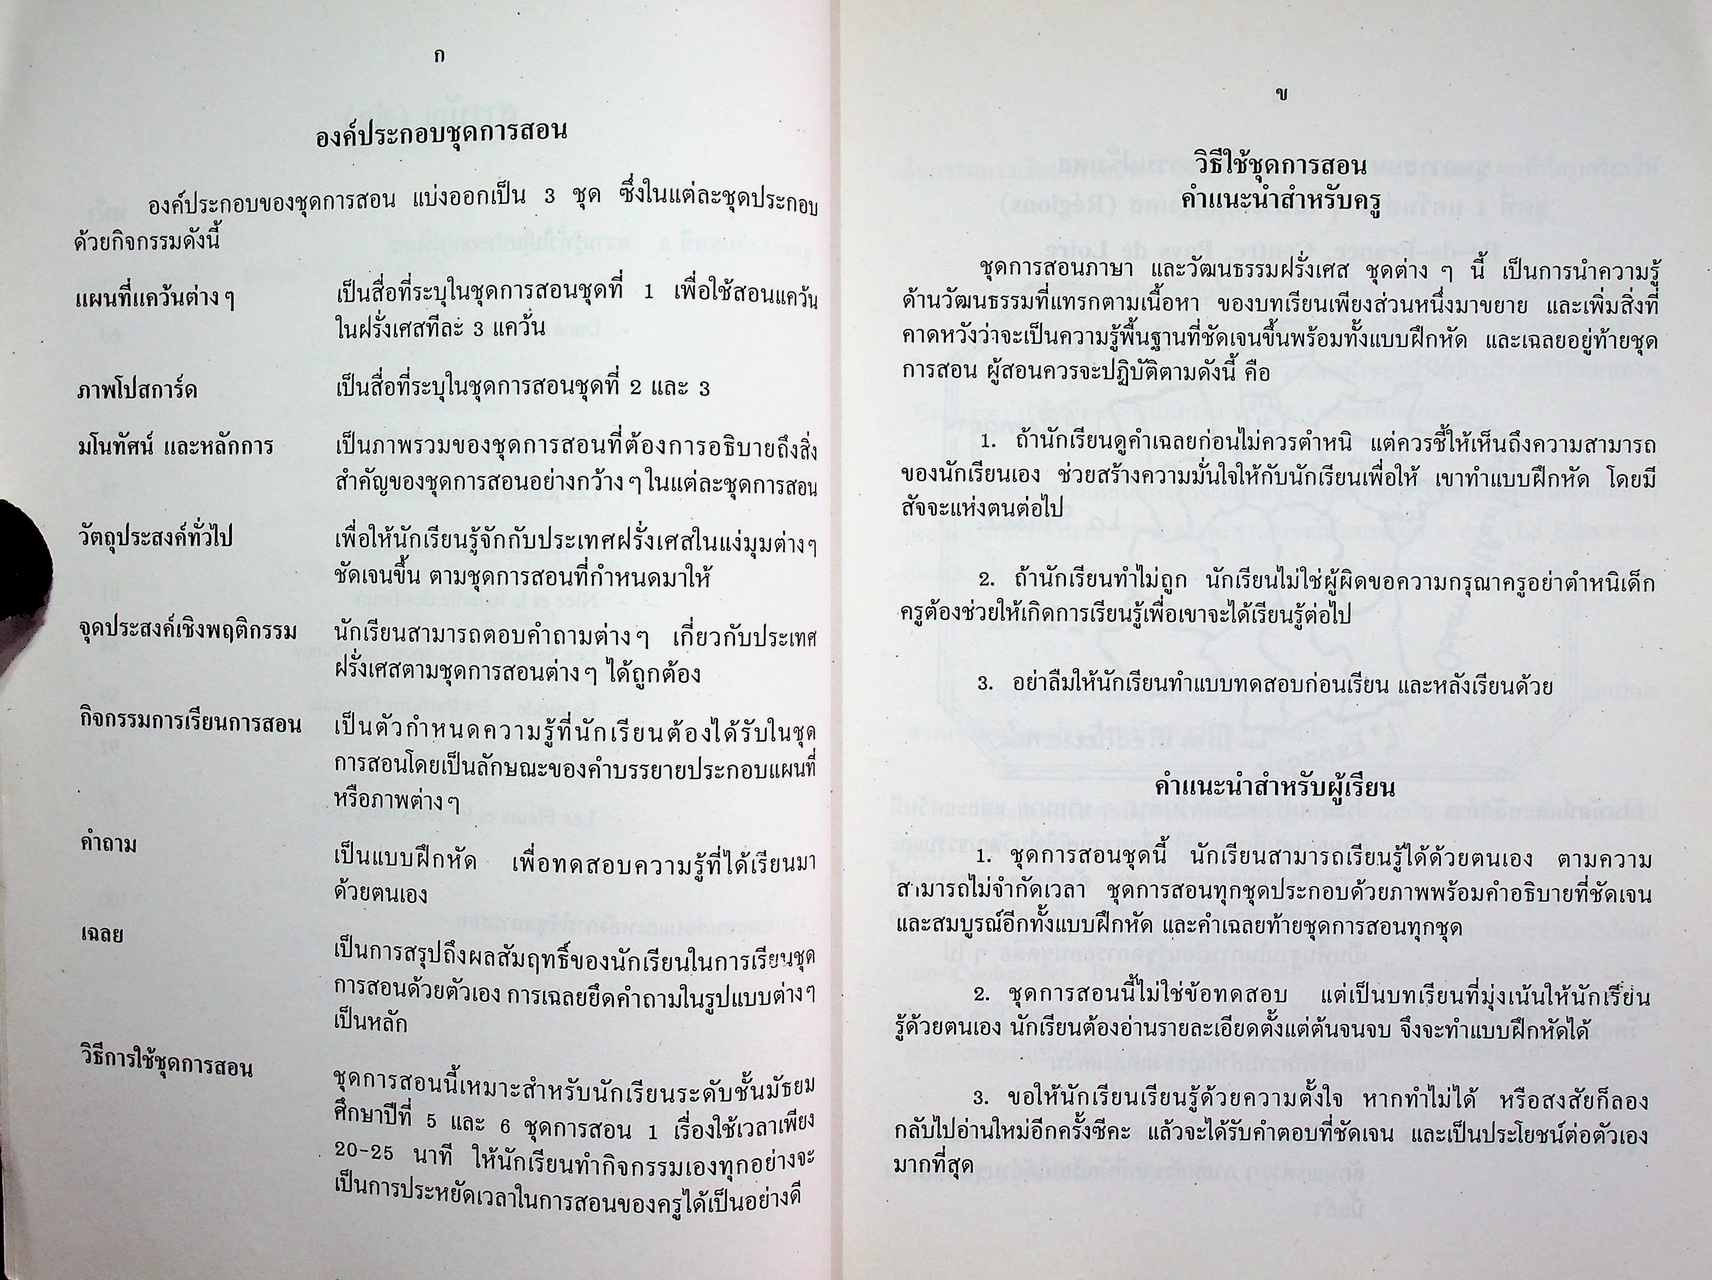 ก
องค์ประกอบชุดการสอน
องค์ประกอบของชุดการสอน แบ่งออกเป็น 3 ชุด ซึ่งในแต่ละชุดประกอบ
ด้วยกิจกรรมดังนี้
แผนที่แคว้นต่าง ๆ เป็นสื่อที่ระบุในชุดการสอนชุดที่ 1 เพื่อใช้สอนแคว้น
ในฝรั่งเศสทีละ 3 แคว้น
ภาพโปสการ์ด เป็นสื่อที่ระบุในชุดการสอนชุดที่ 2 และ 3
มโนทัศน์ และหลักการ เป็นภาพรวมของชุดการสอนที่ต้องการอธิบายถึงสิ่ง
สำคัญของชุดการสอนอย่างกว้าง ๆ ในแต่ละชุดการสอน
วัตถุประสงค์ทั่วไป เพื่อให้นักเรียนรู้จักกับประเทศฝรั่งเศสในแง่มุมต่าง ๆ
ชัดเจนขึ้น ตามชุดการสอนที่กำหนดมาให้
จุดประสงค์เชิงพฤติกรรม นักเรียนสามารถตอบคำถามต่าง ๆ เกี่ยวกับประเทศ
ฝรั่งเศสตามชุดการสอนต่าง ๆ ได้ถูกต้อง
กิจกรรมการเรียนการสอน เป็นตัวกำหนดความรู้ที่นักเรียนต้องได้รับในชุด
การสอนโดยเป็นลักษณะของคำบรรยายประกอบแผนที่
หรือภาพต่าง ๆ
คำถาม เป็นแบบฝึกหัด เพื่อทดสอบความรู้ที่ได้เรียนมา
ด้วยตนเอง
เฉลย เป็นการสรุปถึงผลสัมฤทธิ์ของนักเรียนในการเรียนชุด
การสอนด้วยตัวเอง การเฉลยยึดคำถามในรูปแบบต่าง ๆ
เป็นหลัก
วิธีการใช้ชุดการสอน ชุดการสอนนี้เหมาะสำหรับนักเรียนระดับชั้นมัธยม
ศึกษาปีที่ 5 และ 6 ชุดการสอน 1 เรื่องใช้เวลาเพียง
20-25 นาที ให้นักเรียนทำกิจกรรมเองทุกอย่างจะ
เป็นการประหยัดเวลาในการสอนของครูได้เป็นอย่างดี
ข
วิธีใช้ชุดการสอน
คำแนะนำสำหรับครู
ชุดการสอนภาษา และวัฒนธรรมฝรั่งเศส ชุดต่าง ๆ นี้ เป็นการนำความรู้
ด้านวัฒนธรรมที่แทรกตามเนื้อหา ของบทเรียนเพียงส่วนหนึ่งมาขยาย และเพิ่มสิ่งที่
คาดหวังว่าจะเป็นความรู้พื้นฐานที่ชัดเจนขึ้นพร้อมทั้งแบบฝึกหัด และเฉลยอยู่ท้ายชุด
การสอน ผู้สอนควรจะปฏิบัติตามดังนี้ คือ
1. ถ้านักเรียนดูคำเฉลยก่อนไม่ควรตำหนิ แต่ควรชี้ให้เห็นถึงความสามารถ
ของนักเรียนเอง ช่วยสร้างความมั่นใจให้กับนักเรียนเพื่อให้ เขาทำแบบฝึกหัด โดยมี
สัจจะแห่งตนต่อไป
2. ถ้านักเรียนทำไม่ถูก นักเรียนไม่ใช่ผู้ผิดขอความกรุณาครูอย่าตำหนิเด็ก
ครูต้องช่วยให้เกิดการเรียนรู้เพื่อเขาจะได้เรียนรู้ต่อไป
3. อย่าลืมให้นักเรียนทำแบบทดสอบก่อนเรียน และหลังเรียนด้วย
คำแนะนำสำหรับผู้เรียน
1. ชุดการสอนชุดนี้ นักเรียนสามารถเรียนรู้ได้ด้วยตนเอง ตามความ
สามารถไม่จำกัดเวลา ชุดการสอนทุกชุดประกอบด้วยภาพพร้อมคำอธิบายที่ชัดเจน
และสมบูรณ์อีกทั้งแบบฝึกหัด และคำเฉลยท้ายชุดการสอนทุกชุด
2. ชุดการสอนนี้ไม่ใช่ข้อทดสอบ แต่เป็นบทเรียนที่มุ่งเน้นให้นักเรียน
รู้ด้วยตนเอง นักเรียนต้องอ่านรายละเอียดตั้งแต่ต้นจนจบ จึงจะทำแบบฝึกหัดได้
3. ขอให้นักเรียนเรียนรู้ด้วยความตั้งใจ หากทำไม่ได้ หรือสงสัยก็ลอง
กลับไปอ่านใหม่อีกครั้งซีคะ แล้วจะได้รับคำตอบที่ชัดเจน และเป็นประโยชน์ต่อตัวเอง
มากที่สุด